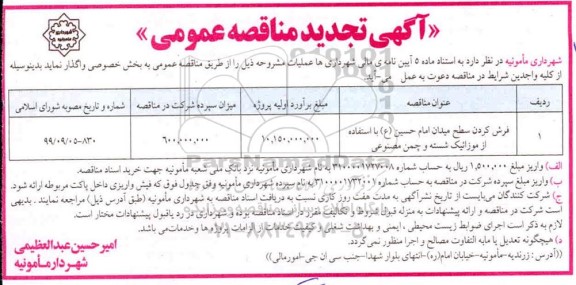 «آگهی تجدید مناقصه عمومی»
شهرداری مأمونیه در نظر دارد به استناد ماده ۵ آیین نامه ی مالی شهرداری ها عملیات مشروحه ذیل را از طریق مناقصه عمومی به بخش خصوصی واگذار نماید بدینوسیله
از کلیه واجدین شرایط در مناقصه دعوت به عمل می آید.
ردیف عنوان مناقصه مبلغ برآورد اولیه پروژه میزان سپرده شرکت در مناقصه شماره و تاریخ مصوبه شورای اسلامی
۱ فرش کردن سطح میدان امام حسین (ع) با استفاده ۱۰,۱۵۰,۰۰۰,۰۰۰ ۶۰۰,۰۰۰,۰۰۰ ۹۹/۰۹/۰۵-۸۳۰
از موزائیک شسته و چمن مصنوعی
الف) واریز مبلغ ۱,۵۰۰,۰۰۰ ریال به حساب شماره به نام شهرداری مأمونیه نزد بانک ملی شعبه مأمونیه جهت خرید اسناد مناقصه.
ب) واریز مبلغ سپرده شرکت در مناقصه به حساب شماره به نام سپرده شهرداری مأمونیه وفق جدول فوق که فیش واریزی داخل پاکت مربوطه ارائه شود.
ج) شرکت کنندگان می‌بایست از تاریخ نشر آگهی به مدت هفت روز کاری نسبت به دریافت اسناد مناقصه به شهرداری مأمونیه (طبق آدرس ذیل) مراجعه نمایند. بدیهی
است شرکت در مناقصه و ارائه پیشنهادات به منزله قبول شروط و تکالیف مقرر در اسناد مناقصه بوده و شهرداری در رد یا قبول پیشنهادات مختار است.
لازم به ذکر است اجرای ضوابط زیست محیطی ، ایمنی و بهداشت شغلی و کیفیت خدمات از الزامات پروژه ها و خدمات می باشد.
د) هیچگونه تعدیل یا مابه التفاوت مصالح و اجرا منظور نمی گردد.
((آدرس: زرندیه-مأمونیه-خیابان امام(ره)-انتهای بلوار شهدا-جنب سی ان جی-امور مالی))
امیرحسین عبدالعظیمی
شهردار مأمونیه
ParsNamadData